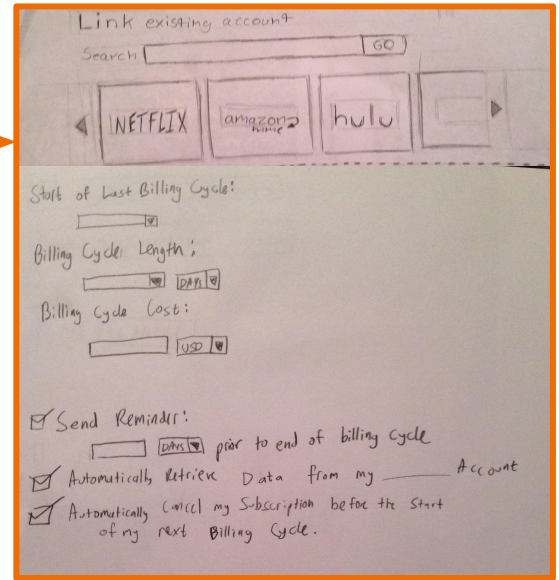 Link existing account
Search GO
NETFLIX amazon hulu
Start of Last Billing Cycle:
Billing Cycle Length:
DAYS
Billing Cycle Cost:
USD
Send Reminder:
DAYS prior to end of billing cycle
Automatically Retrieve Data from my ______ Account
Automatically Cancel my Subscription before the Start
of my next Billing Cycle.